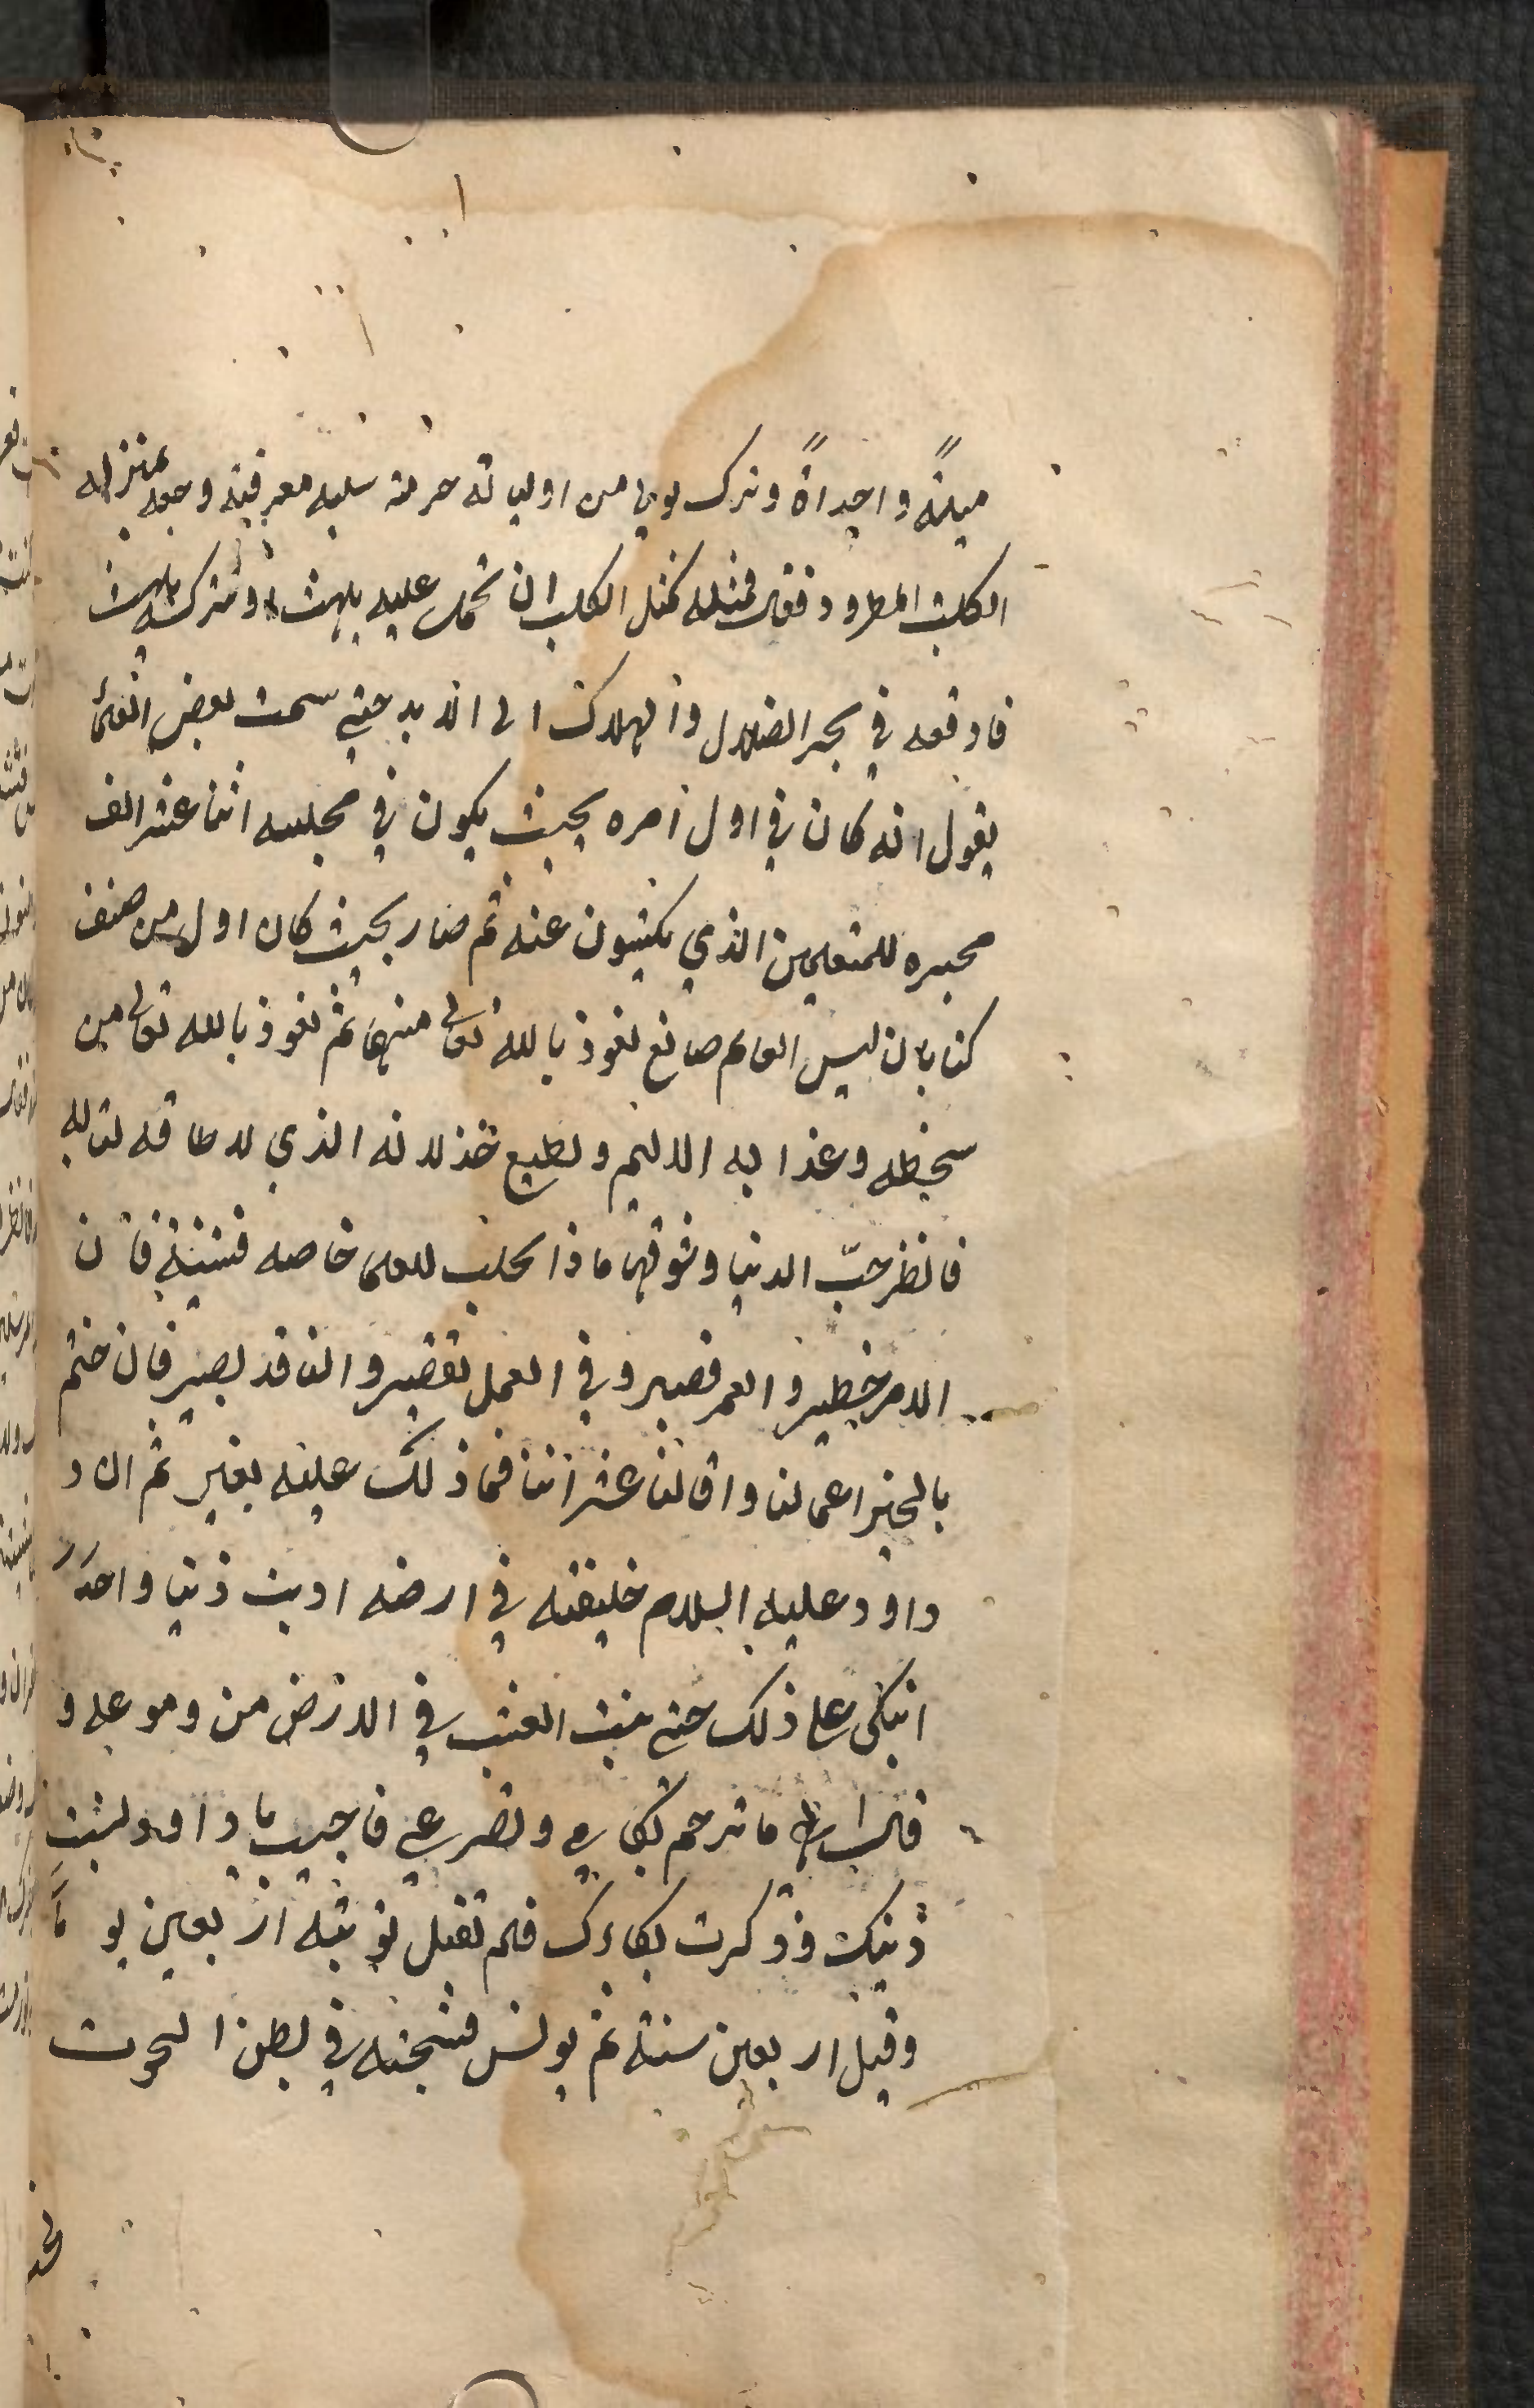 ميلةً واحداةً وترك لولي من اوليائه حرمته سلبه معرفته وجعله بمنزله
الكلب المطرود فقال فمثله كمثل الكلب ان تحمل عليه يلهث او تتركه يلهث
فاوقعه في بحر الضلال والهلاك الى الابد حتي سمعت بعض العلما
يقول انه كان في اول امره بحيث يكون في مجلسه اثنا عشر الف
محبره للمتعلمين الذي يكتبون عنه ثم صار بحيث كان اول من صنف
كتابا ان ليس العالم صانع نعوذ بالله تعالى منها ثم نعوذ بالله تعالى من
سخطه وعذابه الاليم وخذلانه الذي لا طاقه لنا به
فانظر حبّ الدنيا وشوقها ماذا يجلب للعلما خاصه فتنبه فان
الامر خطير والعمر قصير وفي العمل تقصير والناقد بصير فان ختم
بالخير اعمالنا واقالنا عثراتنا فما ذلك عليه بعسير ثم ان
داود عليه السلام خليفته في ارضه اذنب ذنبا واحدا
ابكى على ذلك حتي نبت العشب في الارض من دموعه و
قال الهي ما ترحم بكاءي وتضرعي فاجيب يا داود نسيت
ذنبك وذكرت بكاءك فلم تقبل توبته اربعين يوماً
وقيل اربعين سنة ثم يونس فسجنه في بطن الحوت